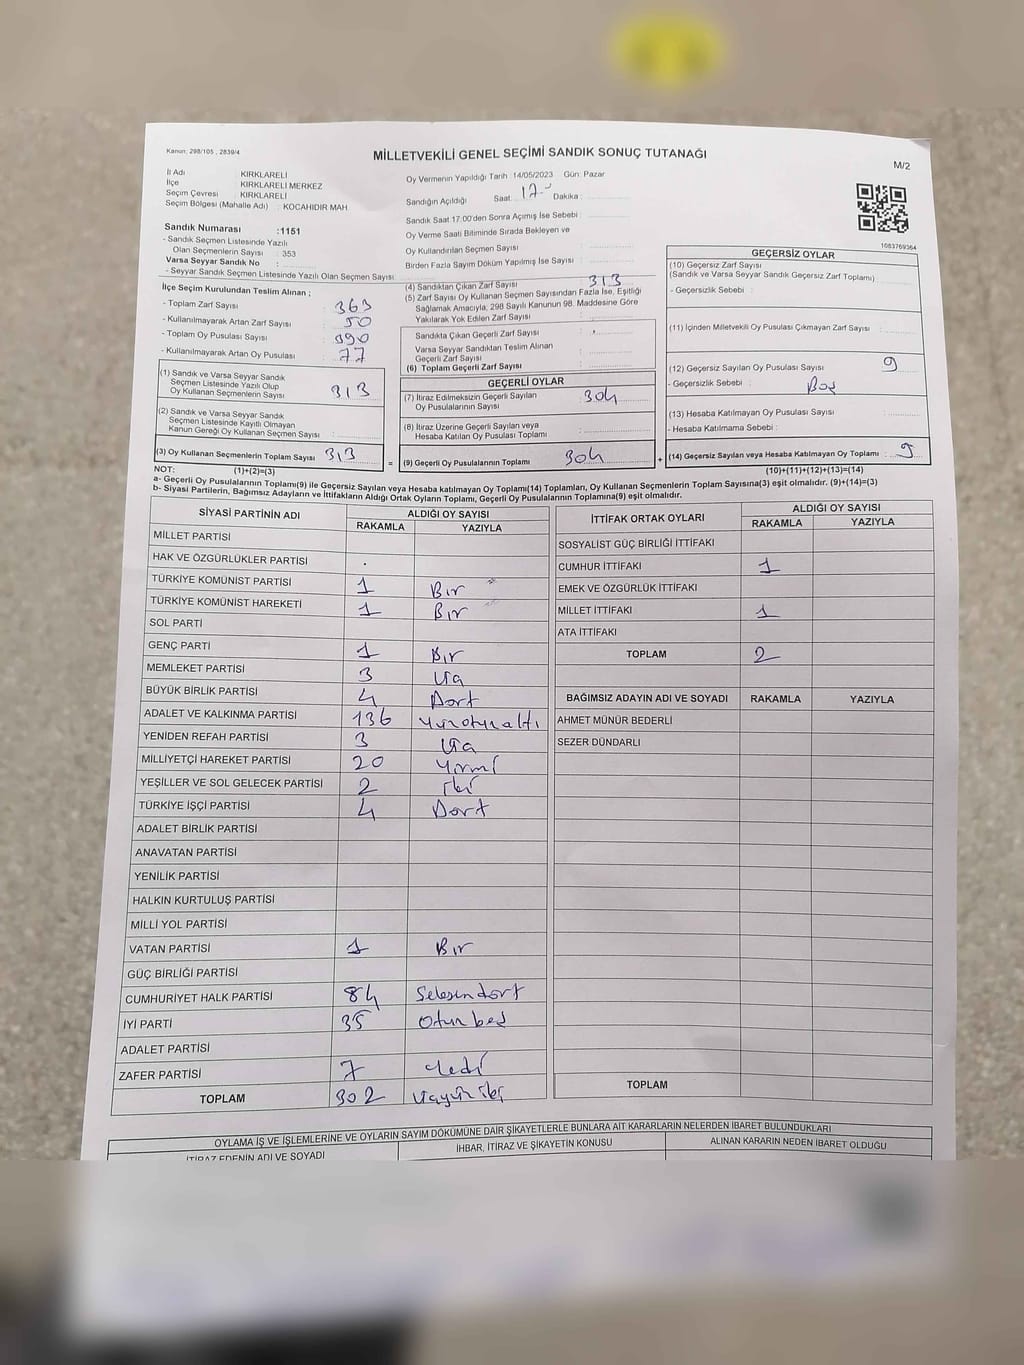 Kanun: 298/105 , 2839/4
MİLLETVEKİLİ GENEL SEÇİMİ SANDIK SONUÇ TUTANAĞI
M/2
İl Adı KIRKLARELİ
İlçe KIRKLARELİ MERKEZ
Seçim Çevresi KIRKLARELİ
Seçim Bölgesi (Mahalle Adı) : KOCAHIDIR MAH.
Sandık Numarası :1151
- Sandık Seçmen Listesinde Yazılı
Olan Seçmenlerin Sayısı : 353
Varsa Seyyar Sandık No :
- Seyyar Sandık Seçmen Listesinde Yazılı Olan Seçmen Sayısı
Oy Vermenin Yapıldığı Tarih 14/05/2023 Gün: Pazar
Sandığın Açıldığı Saat 17 Dakika :
Sandık Saat 17:00'den Sonra Açımış İse Sebebi :
Oy Verme Saati Bitiminde Sırada Bekleyen ve
Oy Kullandırılan Seçmen Sayısı :
Birden Fazla Sayım Döküm Yapılmış İse Sayısı :
1083769364
İlçe Seçim Kurulundan Teslim Alınan ;
- Toplam Zarf Sayısı : 363
- Kullanılmayarak Artan Zarf Sayısı : 50
- Toplam Oy Pusulası Sayısı : 390
- Kullanılmayarak Artan Oy Pusulası : 77
(1) Sandık ve Varsa Seyyar Sandık
Seçmen Listesinde Yazılı Olup
Oy Kullanan Seçmenlerin Sayısı : 313
(2) Sandık ve Varsa Seyyar Sandık
Seçmen Listesinde Kayıtlı Olmayan
Kanun Gereği Oy Kullanan Seçmen Sayısı :
(3) Oy Kullanan Seçmenlerin Toplam Sayısı 313
(4) Sandıktan Çıkan Zarf Sayısı : 313
(5) Zarf Sayısı Oy Kullanan Seçmen Sayısından Fazla İse, Eşitliği
Sağlamak Amacıyla, 298 Sayılı Kanunun 98. Maddesine Göre
Yakılarak Yok Edilen Zarf Sayısı :
Sandıkta Çıkan Geçerli Zarf Sayısı :
Varsa Seyyar Sandıktan Teslim Alınan
Geçerli Zarf Sayısı :
(6) Toplam Geçerli Zarf Sayısı :
GEÇERLİ OYLAR
(7) İtiraz Edilmeksizin Geçerli Sayılan
Oy Pusulalarının Sayısı : 304
(8) İtiraz Üzerine Geçerli Sayılan veya
Hesaba Katılan Oy Pusulası Toplamı :
= (9) Geçerli Oy Pusulalarının Toplamı : 304 +
GEÇERSİZ OYLAR
(10) Geçersiz Zarf Sayısı
(Sandık ve Varsa Seyyar Sandık Geçersiz Zarf Toplamı)
- Geçersizlik Sebebi :
(11) İçinden Milletvekili Oy Pusulası Çıkmayan Zarf Sayısı :
(12) Geçersiz Sayılan Oy Pusulası Sayısı : 9
- Geçersizlik Sebebi : Boş
(13) Hesaba Katılmayan Oy Pusulası Sayısı :
- Hesaba Katılmama Sebebi :
(14) Geçersiz Sayılan veya Hesaba Katılmayan Oy Toplamı : 9
NOT: (1)+(2)=(3)
(10)+(11)+(12)+(13)=(14)
a- Geçerli Oy Pusulalarının Toplamı(9) ile Geçersiz Sayılan veya Hesaba katılmayan Oy Toplamı(14) Toplamları, Oy Kullanan Seçmenlerin Toplam Sayısına(3) eşit olmalıdır. (9)+(14)=(3)
b- Siyasi Partilerin, Bağımsız Adayların ve İttifakların Aldığı Ortak Oyların Toplamı, Geçerli Oy Pusulalarının Toplamına(9) eşit olmalıdır.
SİYASİ PARTİNİN ADI ALDIĞI OY SAYISI
RAKAMLA YAZIYLA
MİLLET PARTİSİ
HAK VE ÖZGÜRLÜKLER PARTİSİ
TÜRKİYE KOMÜNİST PARTİSİ 1 Bir
TÜRKİYE KOMÜNİST HAREKETİ 1 Bir
SOL PARTİ
GENÇ PARTİ 1 Bir
MEMLEKET PARTİSİ 3 Üç
BÜYÜK BİRLİK PARTİSİ 4 Dort
ADALET VE KALKINMA PARTİSİ 136 Yüzotuzaltı
YENİDEN REFAH PARTİSİ 3 Üç
MİLLİYETÇİ HAREKET PARTİSİ 20 Yirmi
YEŞİLLER VE SOL GELECEK PARTİSİ 2 İki
TÜRKİYE İŞÇİ PARTİSİ 4 Dort
ADALET BİRLİK PARTİSİ
ANAVATAN PARTİSİ
YENİLİK PARTİSİ
HALKIN KURTULUŞ PARTİSİ
MİLLİ YOL PARTİSİ
VATAN PARTİSİ 1 Bir
GÜÇ BİRLİĞİ PARTİSİ
CUMHURİYET HALK PARTİSİ 84 Seksendort
İYİ PARTİ 35 Otuzbeş
ADALET PARTİSİ
ZAFER PARTİSİ 7 Yedi
TOPLAM 302 Üçyüziki
İTTİFAK ORTAK OYLARI ALDIĞI OY SAYISI
RAKAMLA YAZIYLA
SOSYALİST GÜÇ BİRLİĞİ İTTİFAKI
CUMHUR İTTİFAKI 1
EMEK VE ÖZGÜRLÜK İTTİFAKI
MİLLET İTTİFAKI 1
ATA İTTİFAKI
TOPLAM 2
BAĞIMSIZ ADAYIN ADI VE SOYADI RAKAMLA YAZIYLA
AHMET MÜNÜR BEDERLİ
SEZER DÜNDARLI
TOPLAM
OYLAMA İŞ VE İŞLEMLERİNE VE OYLARIN SAYIM DÖKÜMÜNE DAİR ŞİKAYETLERLE BUNLARA AİT KARARLARIN NELERDEN İBARET BULUNDUKLARI
İTİRAZ EDENİN ADI VE SOYADI İHBAR, İTİRAZ VE ŞİKAYETİN KONUSU ALINAN KARARIN NEDEN İBARET OLDUĞU